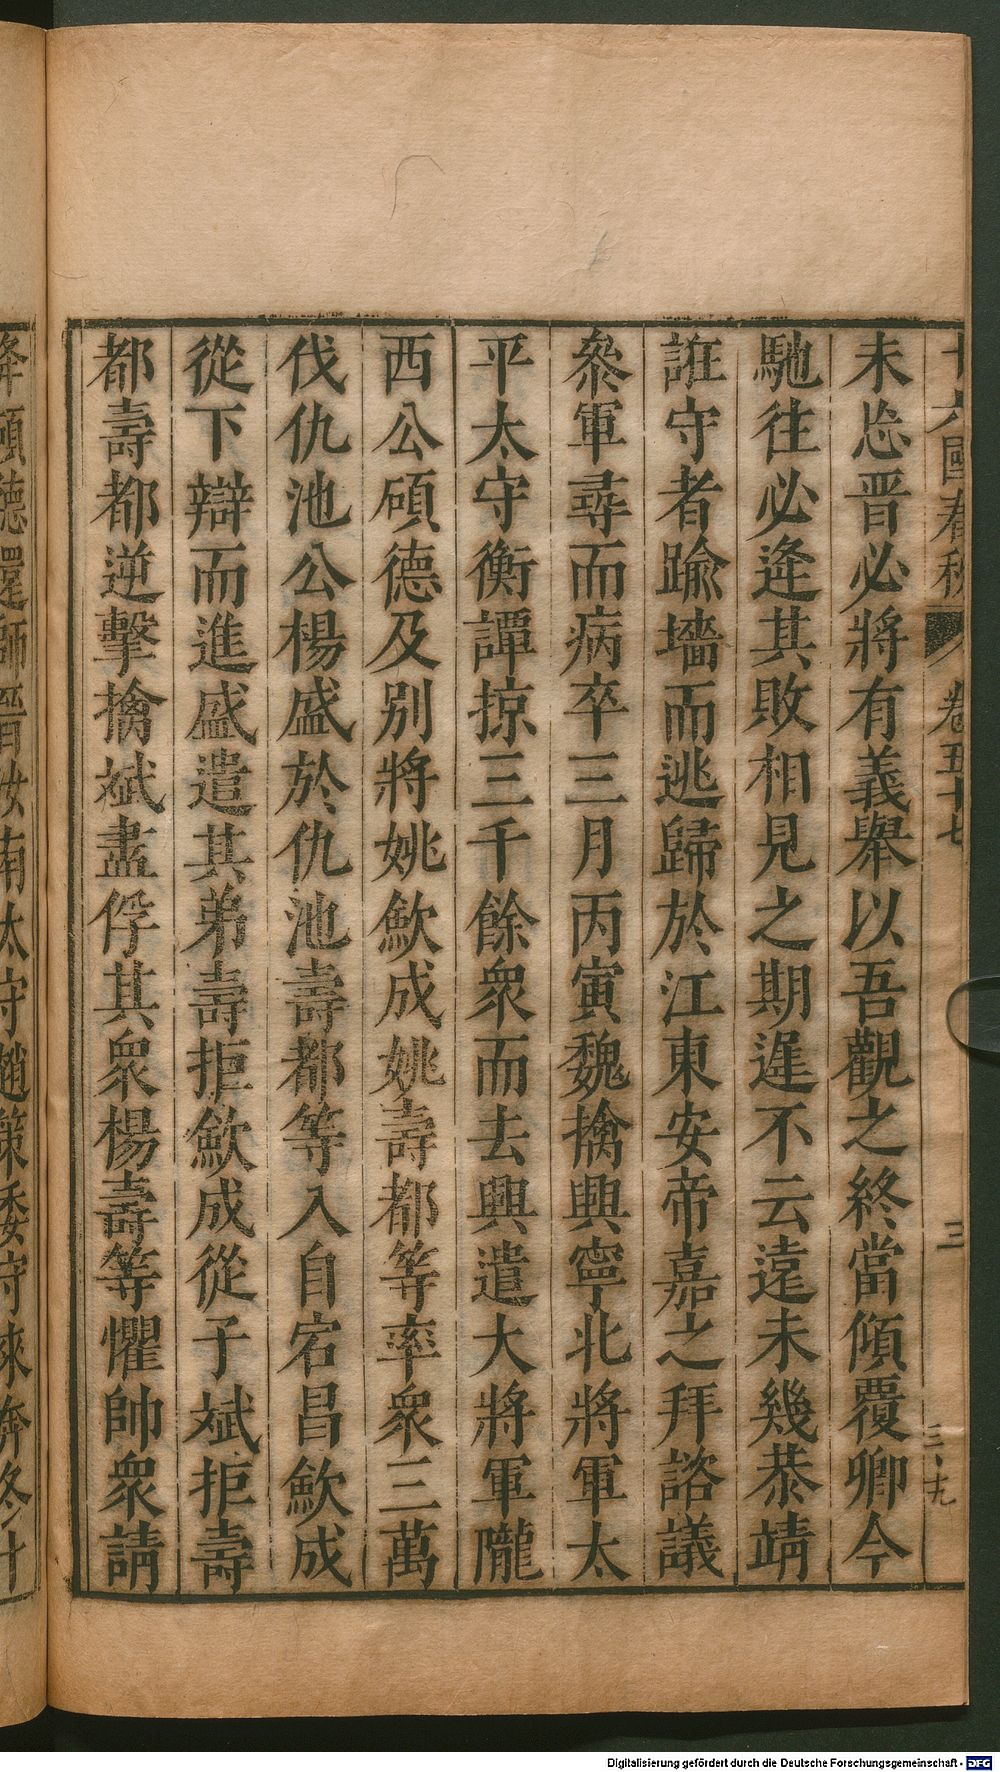 十六國春秋 卷五十七 三 三、九
未忘晋必將有義舉以吾觀之終當傾覆卿今
馳往必逄其敗相見之期遅不云遠未幾恭靖
誑守者踰墻而逃歸於江東安帝嘉之拜諮議
叅軍尋而病卒三月丙寅魏擒興寧北將軍太
平太守衡譚掠三千餘衆而去興遣大將軍隴
西公碩德及别將姚歛成姚壽都等率衆三萬
伐仇池公楊盛於仇池壽都等入自宕昌歛成
從下辯而進盛遣其弟壽拒歛成從子斌拒壽
都壽都逆擊擒斌盡俘其衆楊壽等懼帥衆請
降碩德還師晉汝南太守趙策委守來奔冬十
Digitalisierung gefördert durch die Deutsche Forschungsgemeinschaft - DFG